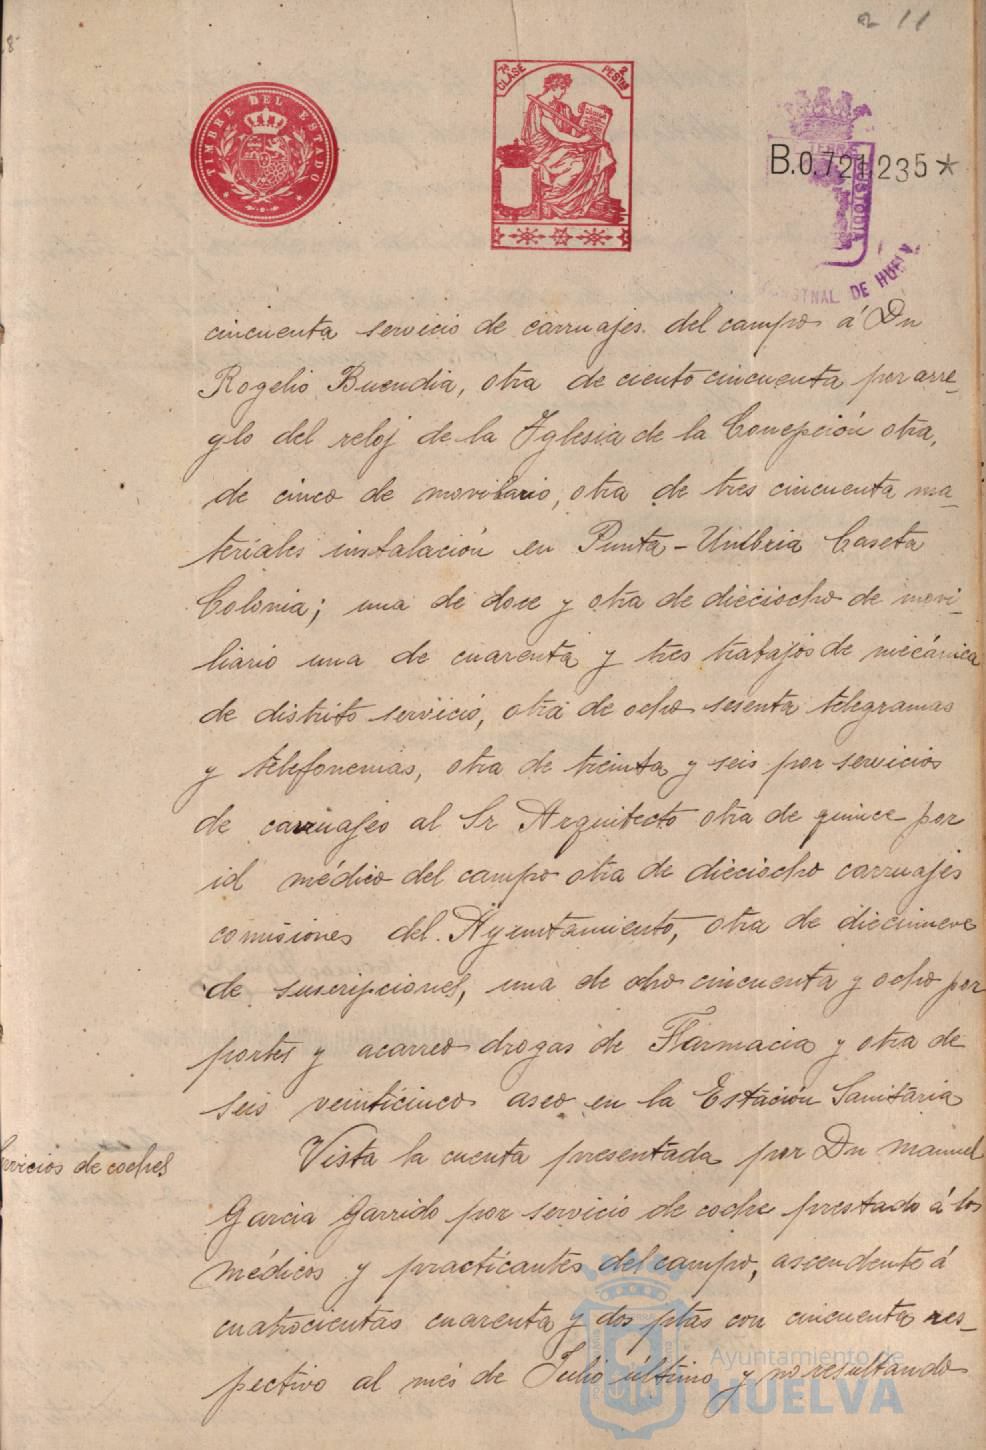 11
TIMBRE DEL ESTADO
7ª CLASE
2 PESTAS
B.0.721.235*
CUSTODIA
DE HUELV
cincuenta servicio de carruajes. del campo á Dn
Rogelio Buendia, otra de ciento cincuenta por arre-
glo del reloj de la Iglesia de la Concepción otra,
de cinco de moviliario, otra de tres cincuenta ma-
teriales instalación en Punta-Umbria Caseta
Colonia; una de doce y otra de dieciocho de movi-
liario una de cuarenta y tres trabajos de mecánica
de distrito servicio, otra de ocho sesenta telegramas
y telefonemas, otra de treinta y seis por servicios
de carruajes al Sr Arquitecto otra de quince por
id médico del campo otra de dieciocho carruajes
comisiones del Ayuntamiento, otra de diecinueve
de suscripciones, una de ocho cincuenta y ocho por
portes y acarreo drogas de Farmacia y otra de
seis veinticinco aseo en la Estación Sanitaria
Servicios de coches
Vista la cuenta presentada por Dn Manuel
Garcia Garrido por servicio de coche prestado á los
médicos y practicantes del campo, ascendente á
cuatrocientas cuarenta y dos ptas con cincuenta res-
pectivo al mes de Julio último y no resultando
Ayuntamiento de
HUELVA